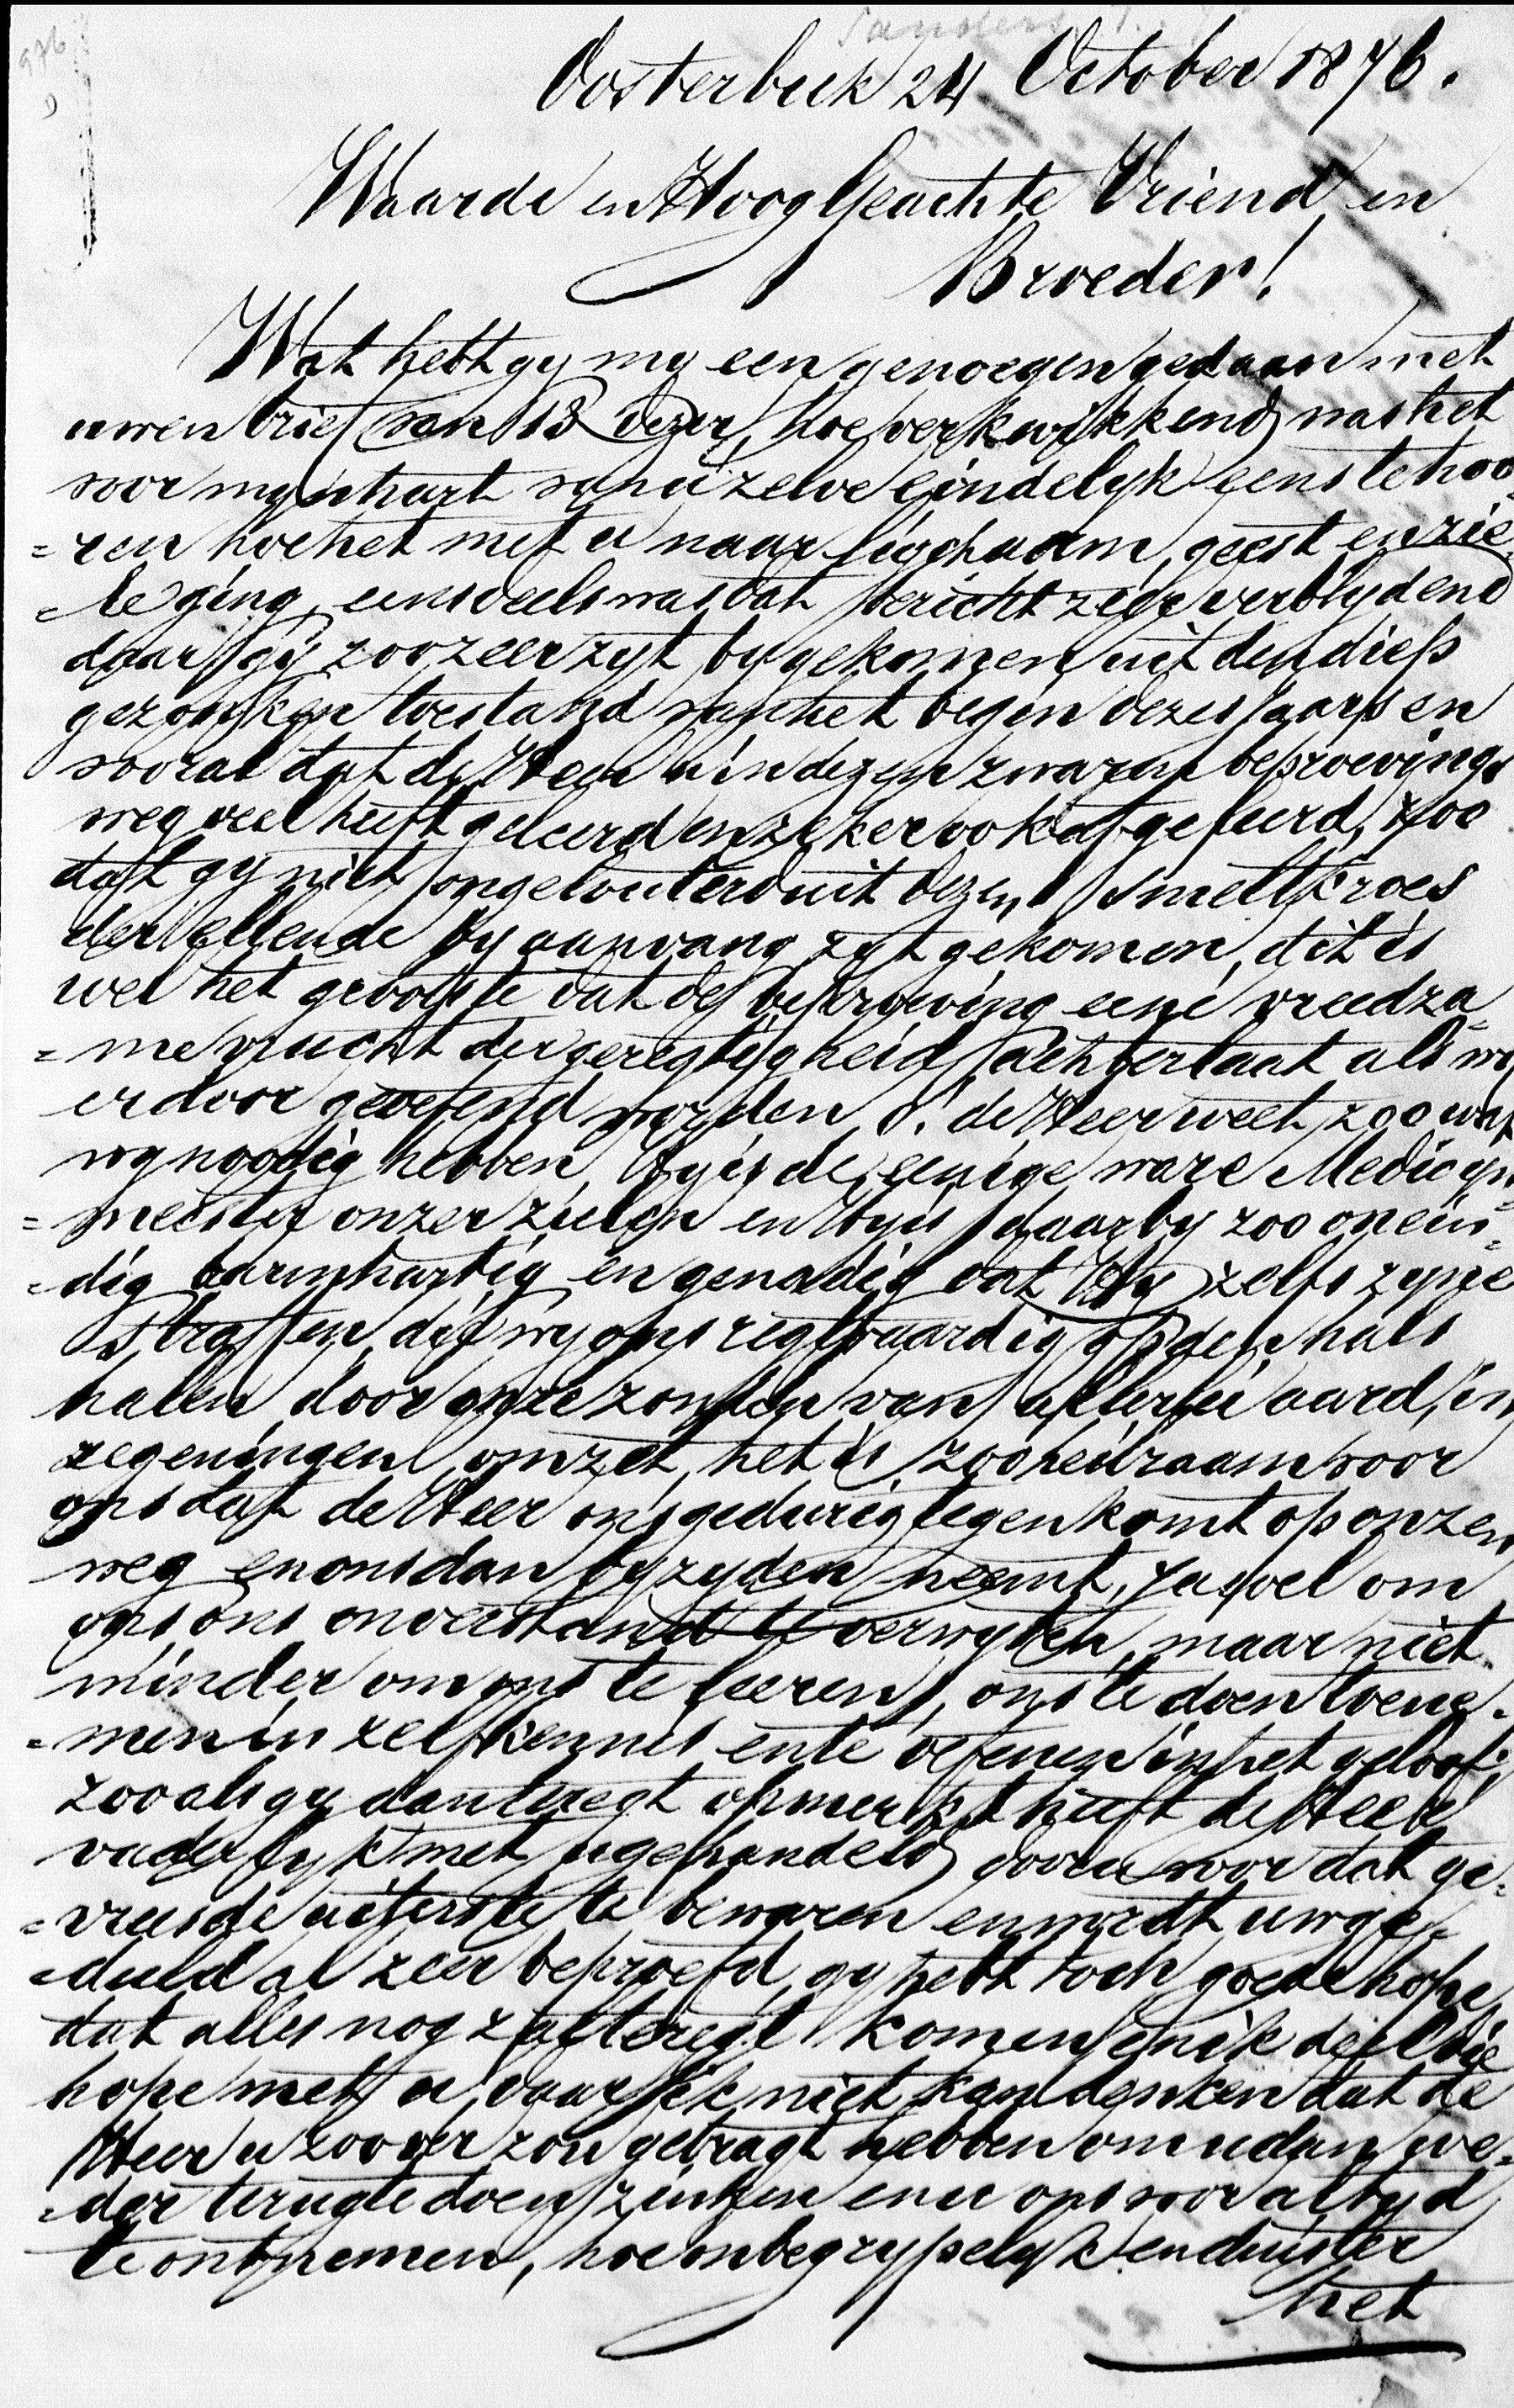 Oosterbeek 24 October 1876.
Waarde en Hoog Geachte Vriend en
Broeder!
Wat hebt gy my een genoegen gedaan met
uwen brief van 18 dezer, hoe verkwikkend was het
voor myn hart van u zelve eindelyk eens te hoo
=ren hoe het met u naar ligchaam, geest en zie
=le ging, eensdeels was dat bericht zeer verblydend
daar gy zoo zeer zyt bygekomen uit den diep
gezonken toestand van het begin dezes jaars en
vooral dat de Heer u in dezen zwaren beproevings
weg veel heeft geleerd en zeker ook afgeleerd, zoo
dat gy niet ongelouterd uit dezen smeltkroes
der ellende by aanvang zyt gekomen, dit is
wel het grootste dat de beproeving eene vreedza
=me vrucht der geregtigheid achterlaat als wy
er door geoefend worden, o! de Heer weet zoo wat
wy noodig hebben, Hy is de eenige ware Medicyn
=meester onzer zielen en Hy is daarby zoo onein=
=dig barmhartig en genadig dat Hy zelfs zyne
straffen, die wy ons regtvaardig op den hals
halen door onze zonden van allerlei aard, in
zegeningen omzet, het is zoo heilzaam voor
ons dat de Heer ons gedurig tegenkomt op onzen
weg en ons dan byzyden neemt, Ja wel om
ons ons onverstand te verwyten, maar niet
minder om ons te leeren, ons te doen toene=
=men in zelfkennis en te oefenen in het geloof,
zooals gy dan teregt opmerkt heeft de Heer
vaderlyk met u gehandeld door u voor dat ge=
=vreesde uiterste te bewaren en wordt uw ge=
=duld al zeer beproefd, gy hebt toch goede hope
dat alles nog zal teregt komen en ik deel die
hope met u, daar ik niet kan denken dat de
Heer u zoo ver zou gebragt hebben om u dan we=
=der terug te doen zinken en u ons voor altyd
te ontnemen, hoe onbegrypelyk en duister
het